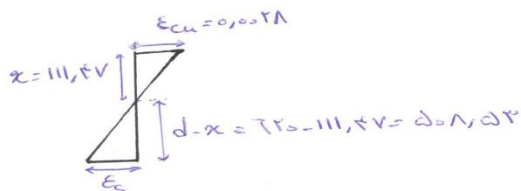 εcu = ۰,۰۰۲۸
x = ۱۱۱,۴۷
d-x = ۶۲۰-۱۱۱,۴۷= ۵۰۸,۵۳
εs